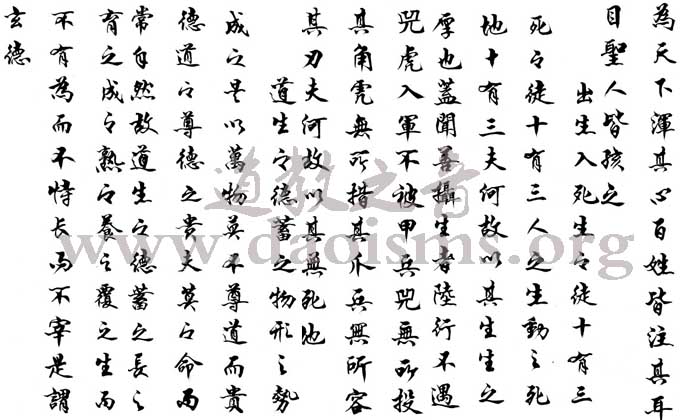 為天下渾其心百姓皆注其耳
目聖人皆孩之
出生入死生之徒十有三
死之徒十有三人之生動之死
地十有三夫何故以其生生之
厚也蓋聞善攝生者陸行不遇
兕虎入軍不被甲兵兕無所投
其角虎無所措其爪兵無所容
其刃夫何故以其無死地
道生之德蓄之物形之勢
成之是以萬物莫不尊道而貴
德道之尊德之貴夫莫之命而
常自然故道生之德蓄之長之
育之成之熟之養之覆之生而
不有為而不恃長而不宰是謂
玄德
道教之音
www.daoisms.org